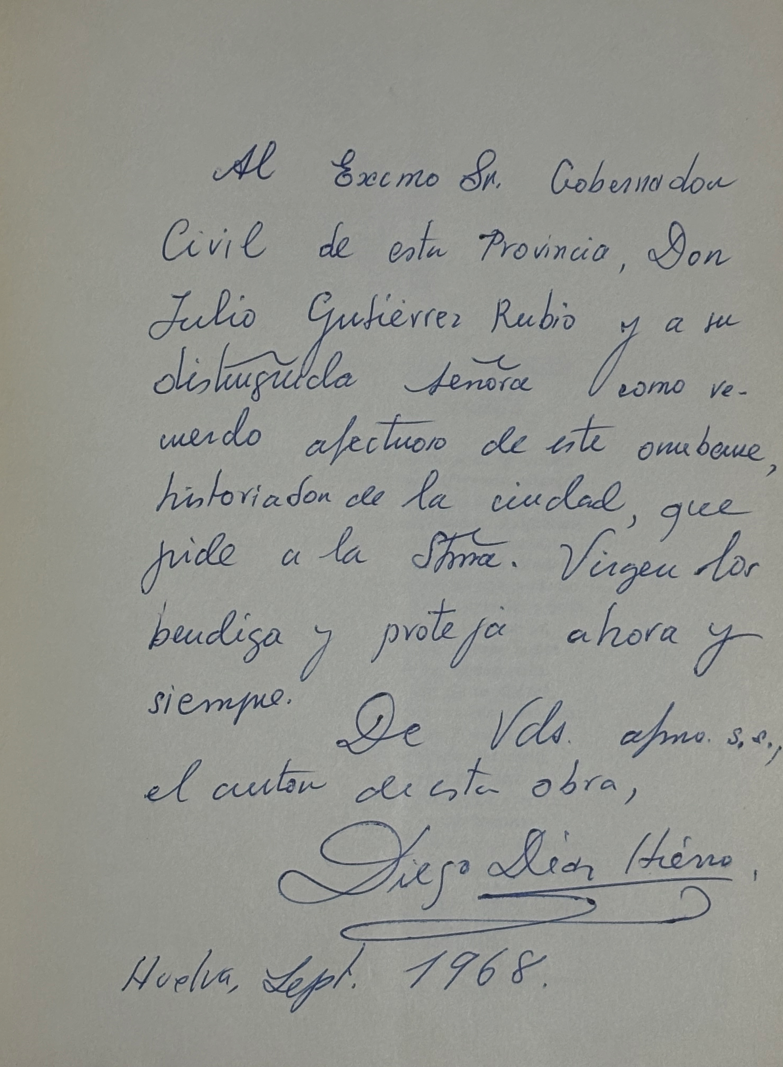 Al Excmo Sr. Gobernador
Civil de esta Provincia, Don
Julio Gutiérrez Rubio y a su
distinguida señora como re-
cuerdo afectuoso de este onubense,
historiador de la ciudad, que
pide a la Stma. Virgen los
bendiga y proteja ahora y
siempre.
De Vds. afmo. s.s.,
el autor de esta obra,
Diego Díaz Hierro.
Huelva, Sept. 1968.